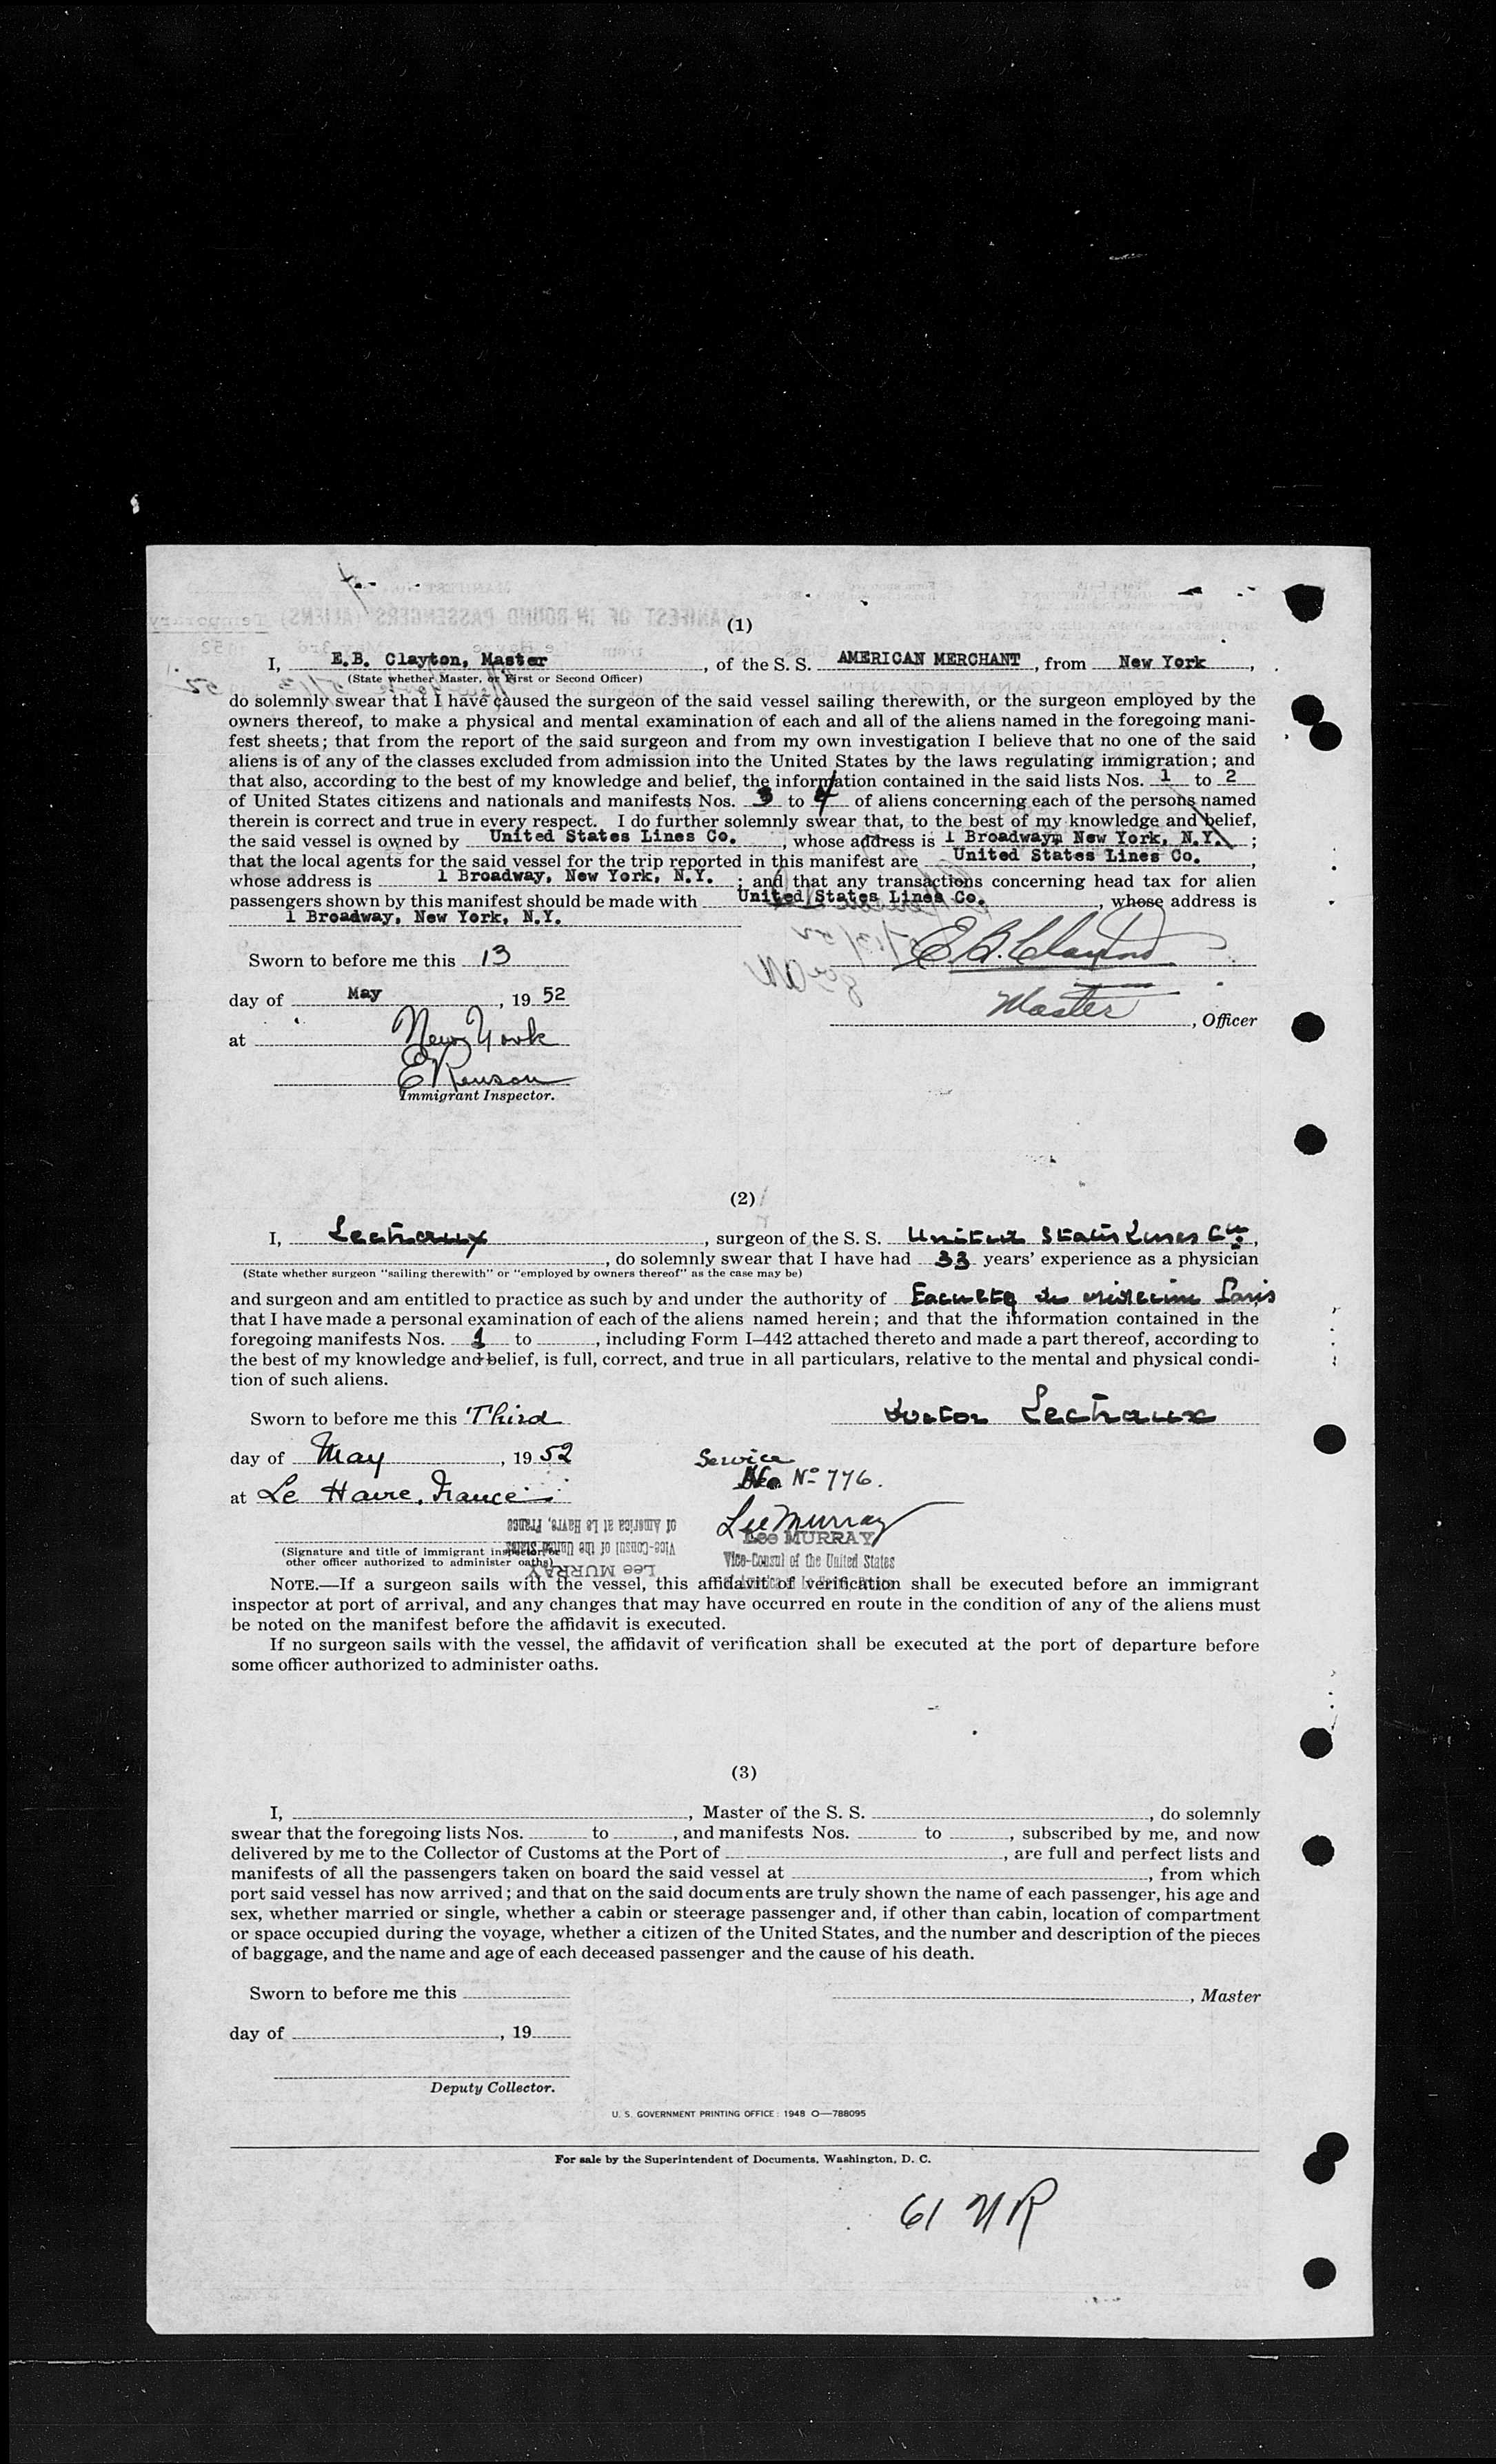 (1)
I, E.B. Clayton, Master, of the S. S. AMERICAN MERCHANT, from New York,
(State whether Master, or First or Second Officer)
do solemnly swear that I have caused the surgeon of the said vessel sailing therewith, or the surgeon employed by the
owners thereof, to make a physical and mental examination of each and all of the aliens named in the foregoing mani-
fest sheets; that from the report of the said surgeon and from my own investigation I believe that no one of the said
aliens is of any of the classes excluded from admission into the United States by the laws regulating immigration; and
that also, according to the best of my knowledge and belief, the information contained in the said lists Nos. 1 to 2
of United States citizens and nationals and manifests Nos. 3 to 4 of aliens concerning each of the persons named
therein is correct and true in every respect. I do further solemnly swear that, to the best of my knowledge and belief,
the said vessel is owned by United States Lines Co., whose address is 1 Broadway, New York, N.Y.;
that the local agents for the said vessel for the trip reported in this manifest are United States Lines Co.,
whose address is 1 Broadway, New York, N.Y.; and that any transactions concerning head tax for alien
passengers shown by this manifest should be made with United States Lines Co., whose address is
1 Broadway, New York, N.Y.
Sworn to before me this 13
E. B. Clayton
day of May, 1952
Master, Officer
at New York
E Renson
Immigrant Inspector.
(2)
I, Lectraux, surgeon of the S. S. United States Lines Co.,
, do solemnly swear that I have had 33 years' experience as a physician
(State whether surgeon "sailing therewith" or "employed by owners thereof" as the case may be)
and surgeon and am entitled to practice as such by and under the authority of Faculty de médecine Paris
that I have made a personal examination of each of the aliens named herein; and that the information contained in the
foregoing manifests Nos. 1 to , including Form I-442 attached thereto and made a part thereof, according to
the best of my knowledge and belief, is full, correct, and true in all particulars, relative to the mental and physical condi-
tion of such aliens.
Sworn to before me this Third
Doctor Lectraux
day of May, 1952
Service
No. 776.
at Le Havre, France
Lee Murray
Lee MURRAY
Vice-Consul of the United States
of America at Le Havre, France
Lee MURRAY
Vice-Consul of the United States
of America at Le Havre, France
(Signature and title of immigrant inspector or
other officer authorized to administer oaths)
NOTE.—If a surgeon sails with the vessel, this affidavit of verification shall be executed before an immigrant
inspector at port of arrival, and any changes that may have occurred en route in the condition of any of the aliens must
be noted on the manifest before the affidavit is executed.
If no surgeon sails with the vessel, the affidavit of verification shall be executed at the port of departure before
some officer authorized to administer oaths.
(3)
I, , Master of the S. S. , do solemnly
swear that the foregoing lists Nos. to , and manifests Nos. to , subscribed by me, and now
delivered by me to the Collector of Customs at the Port of , are full and perfect lists and
manifests of all the passengers taken on board the said vessel at , from which
port said vessel has now arrived; and that on the said documents are truly shown the name of each passenger, his age and
sex, whether married or single, whether a cabin or steerage passenger and, if other than cabin, location of compartment
or space occupied during the voyage, whether a citizen of the United States, and the number and description of the pieces
of baggage, and the name and age of each deceased passenger and the cause of his death.
Sworn to before me this
, Master
day of , 19
Deputy Collector.
U. S. GOVERNMENT PRINTING OFFICE: 1948 O—788095
For sale by the Superintendent of Documents, Washington, D. C.
61 NR